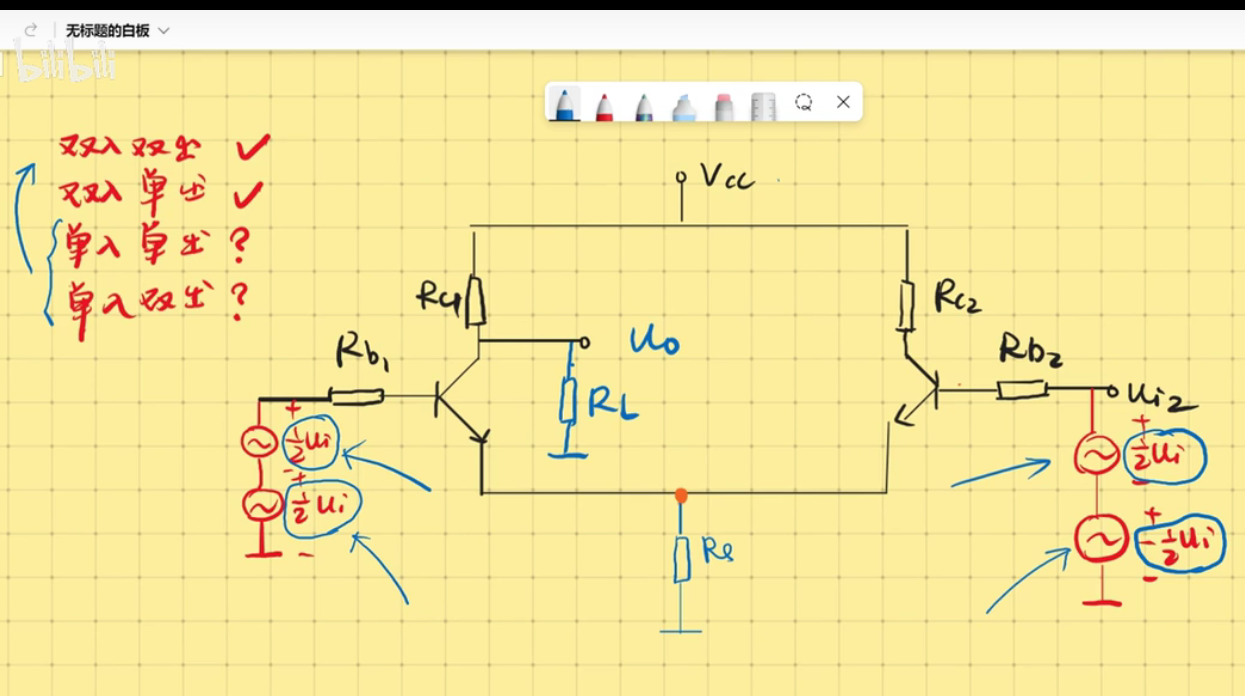 无标题的白板
bilibili
双入双出 ✓
双入单出 ✓
单入单出 ?
单入双出 ?
Vcc
Rc1
Rc2
Uo
Rb1
Rb2
RL
Ui2
+
½Ui
-
+
½Ui
-
+
½Ui
-
+
-½Ui
-
Re